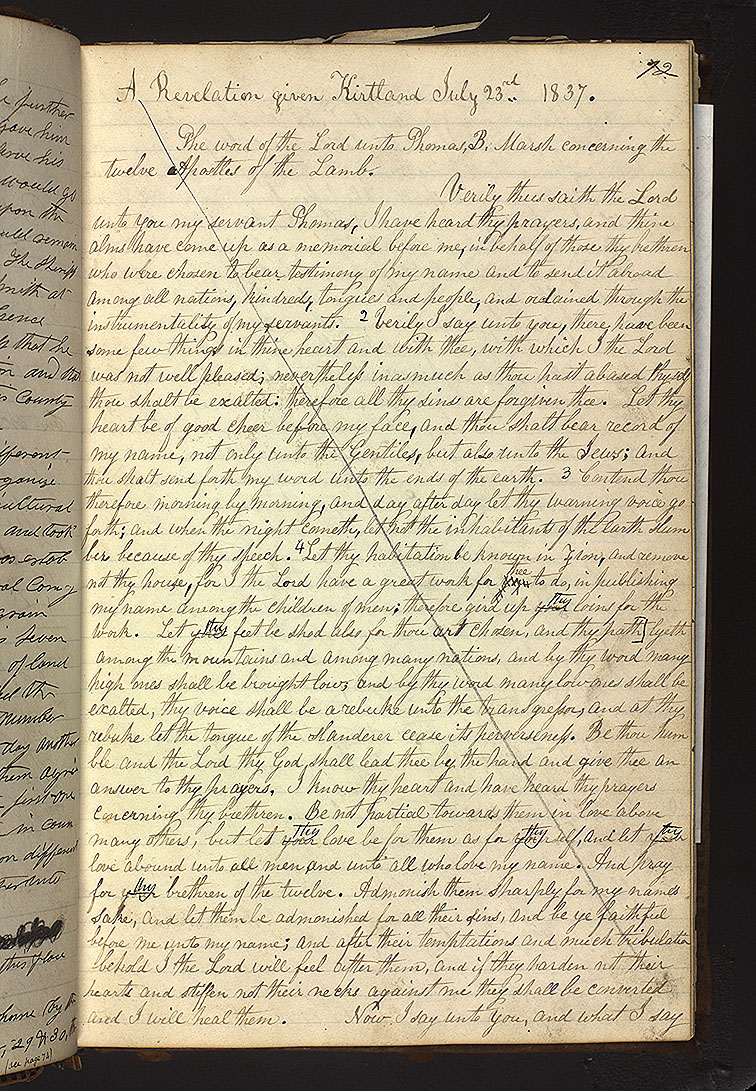 72
A Revelation given Kirtland July 23rd. 1837.
The word of the Lord unto Thomas, B. Marsh concerning the
twelve Apostles of the Lamb.
Verily thus saith the Lord
unto you my servant Thomas, I have heard thy prayers, and thine
alms have come up as a memorial before me, in behalf of those thy brethren
who were chosen to bear testimony of my name and to send it abroad
among all nations, kindred, tongues and people, and ordained through the
instrumentality of my servants. 2 Verily I say unto you, there have been
some few things in thine heart and with thee, with which I the Lord
was not well pleased; nevertheless inasmuch as thou hast abased thyself
thou shalt be exalted: therefore all thy sins are forgiven thee. Let thy
heart be of good cheer before my face, and thou shalt bear record of
my name, not only unto the Gentiles, but also unto the Jews; and
thou shalt send forth my word unto the ends of the earth. 3 Contend thou
therefore morning by morning, and day after day let thy warning voice go
forth; and when the night cometh, let not the inhabitants of the earth slum
ber because of thy speech. 4 Let thy habitation be known in Zion, and remove
not thy house, for I the Lord have a great work for thee to do, in publishing
my name among the children of men; therefore gird up thy loins for the
work. Let thy feet be shod also for thou art chosen, and thy path] lyeth
among the mountains and among many nations, and by thy word many
high ones shall be brought low; and by thy word many low ones shall be
exalted, thy voice shall be a rebuke unto the transgressor, and at thy
rebuke let the tongue of the slanderer cease its perverseness. Be thou hum
ble and the Lord thy God, shall lead thee by the hand and give thee an
answer to thy prayers. I know thy heart and have heard thy prayers
concerning thy brethren. Be not partial towards them in love above
many others, but let thy love be for them as for thyself, and let thy
love abound unto all men and unto all who love my name. And pray
for thy brethren of the twelve. Admonish them sharply for my names
sake, and let them be admonished for all their sins, and be ye faithful
before me unto my name; and after their temptations and much tribulation
behold I the Lord will feel after them, and if they harden not their
hearts and stiffen not their necks against me they shall be converted
and I will heal them. Now, I say unto you, and what I say
further
gave him
would go
upon the
The Sheriff
Smith at
that the
County
different
and took
Seven
of land
number
day another
them again
first one
on different
29 & 30,
(see page 73)